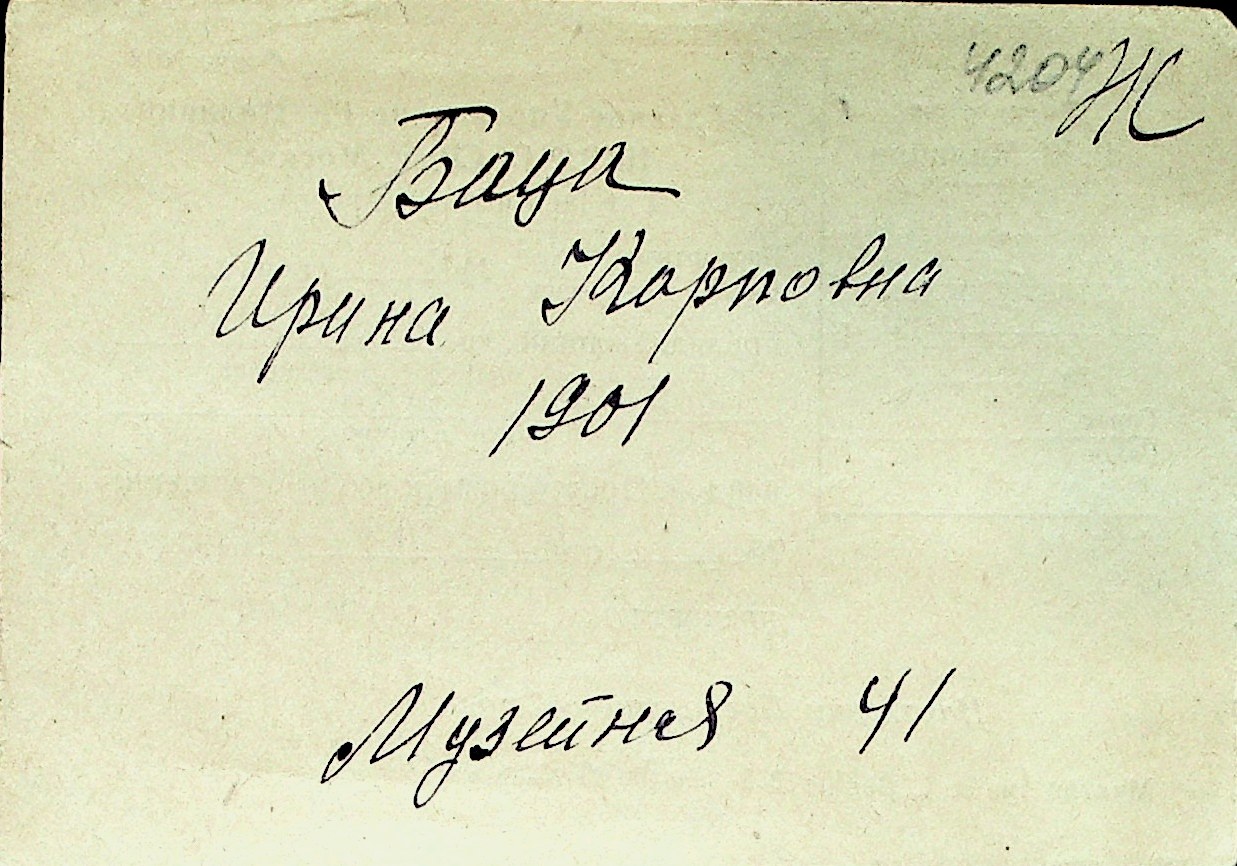 4204 Ж
Баца
Ирина Карповна
1901
Музейная 41